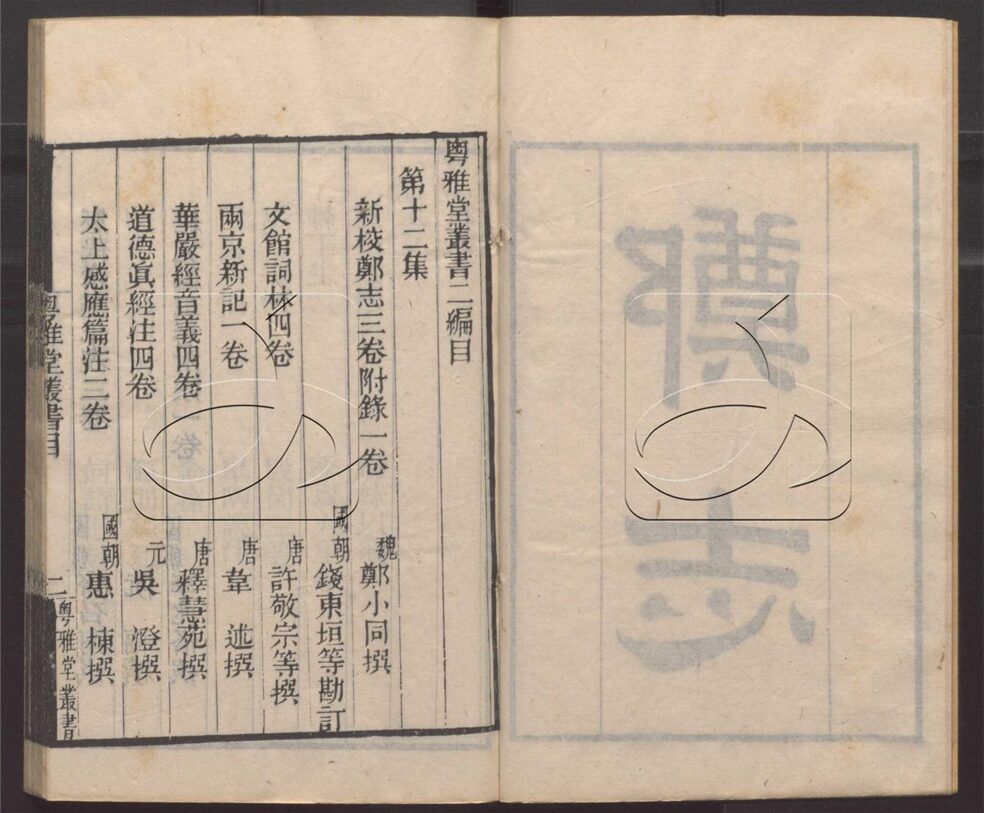 粤雅堂叢書二編目
第十二集
新校鄭志三卷附錄一卷 魏鄭小同撰
國朝錢東垣等勘訂
文館詞林四卷 唐許敬宗等撰
兩京新記一卷 唐韋述撰
華嚴經音義四卷 唐釋慧苑撰
道德眞經注四卷 元吳澄撰
太上感應篇注二卷 國朝惠棟撰
粤雅堂叢書目 二 粤雅堂叢書